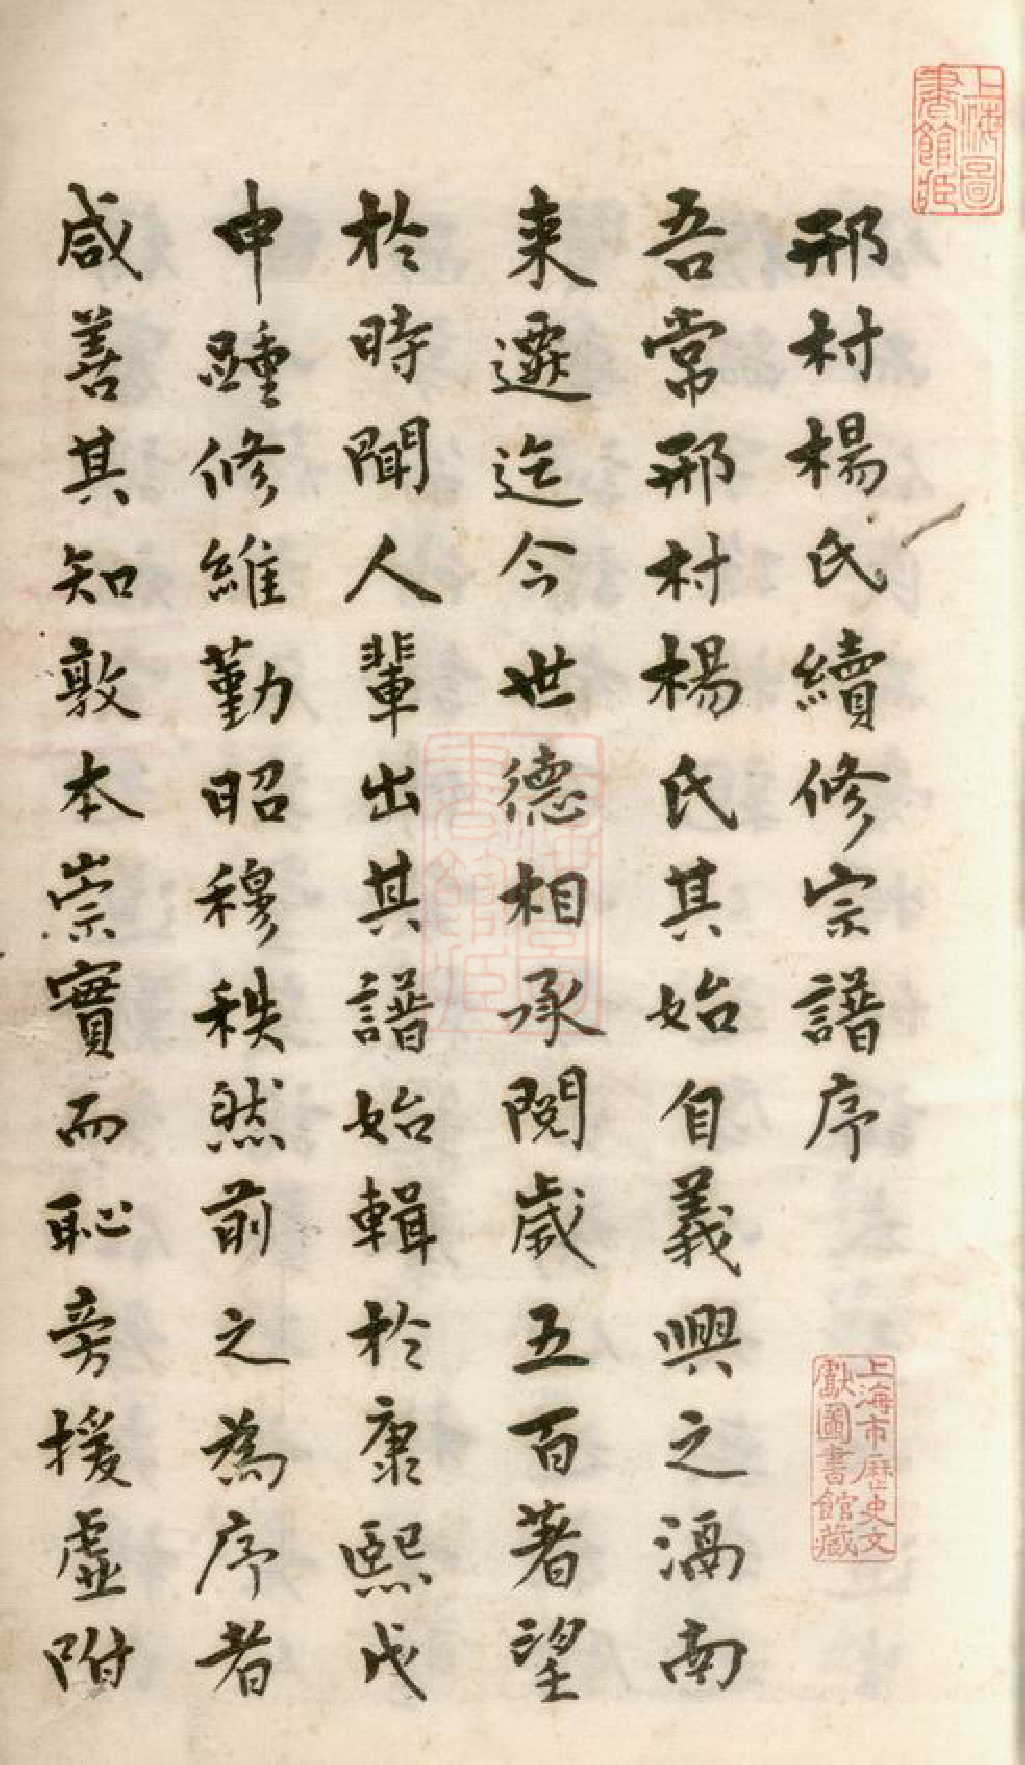 邢村楊氏續修宗譜序
吾常邢村楊氏其始自義興之滆南
来遷迄今世德相承閱歲五百著望
於時聞人輩出其譜始輯於康熙戊
申踵修維勤昭穆秩然前之為序者
咸善其知敦本崇實而恥旁援虛附
上海圖書館藏
上海市歷史文獻圖書館藏
上海圖書館藏